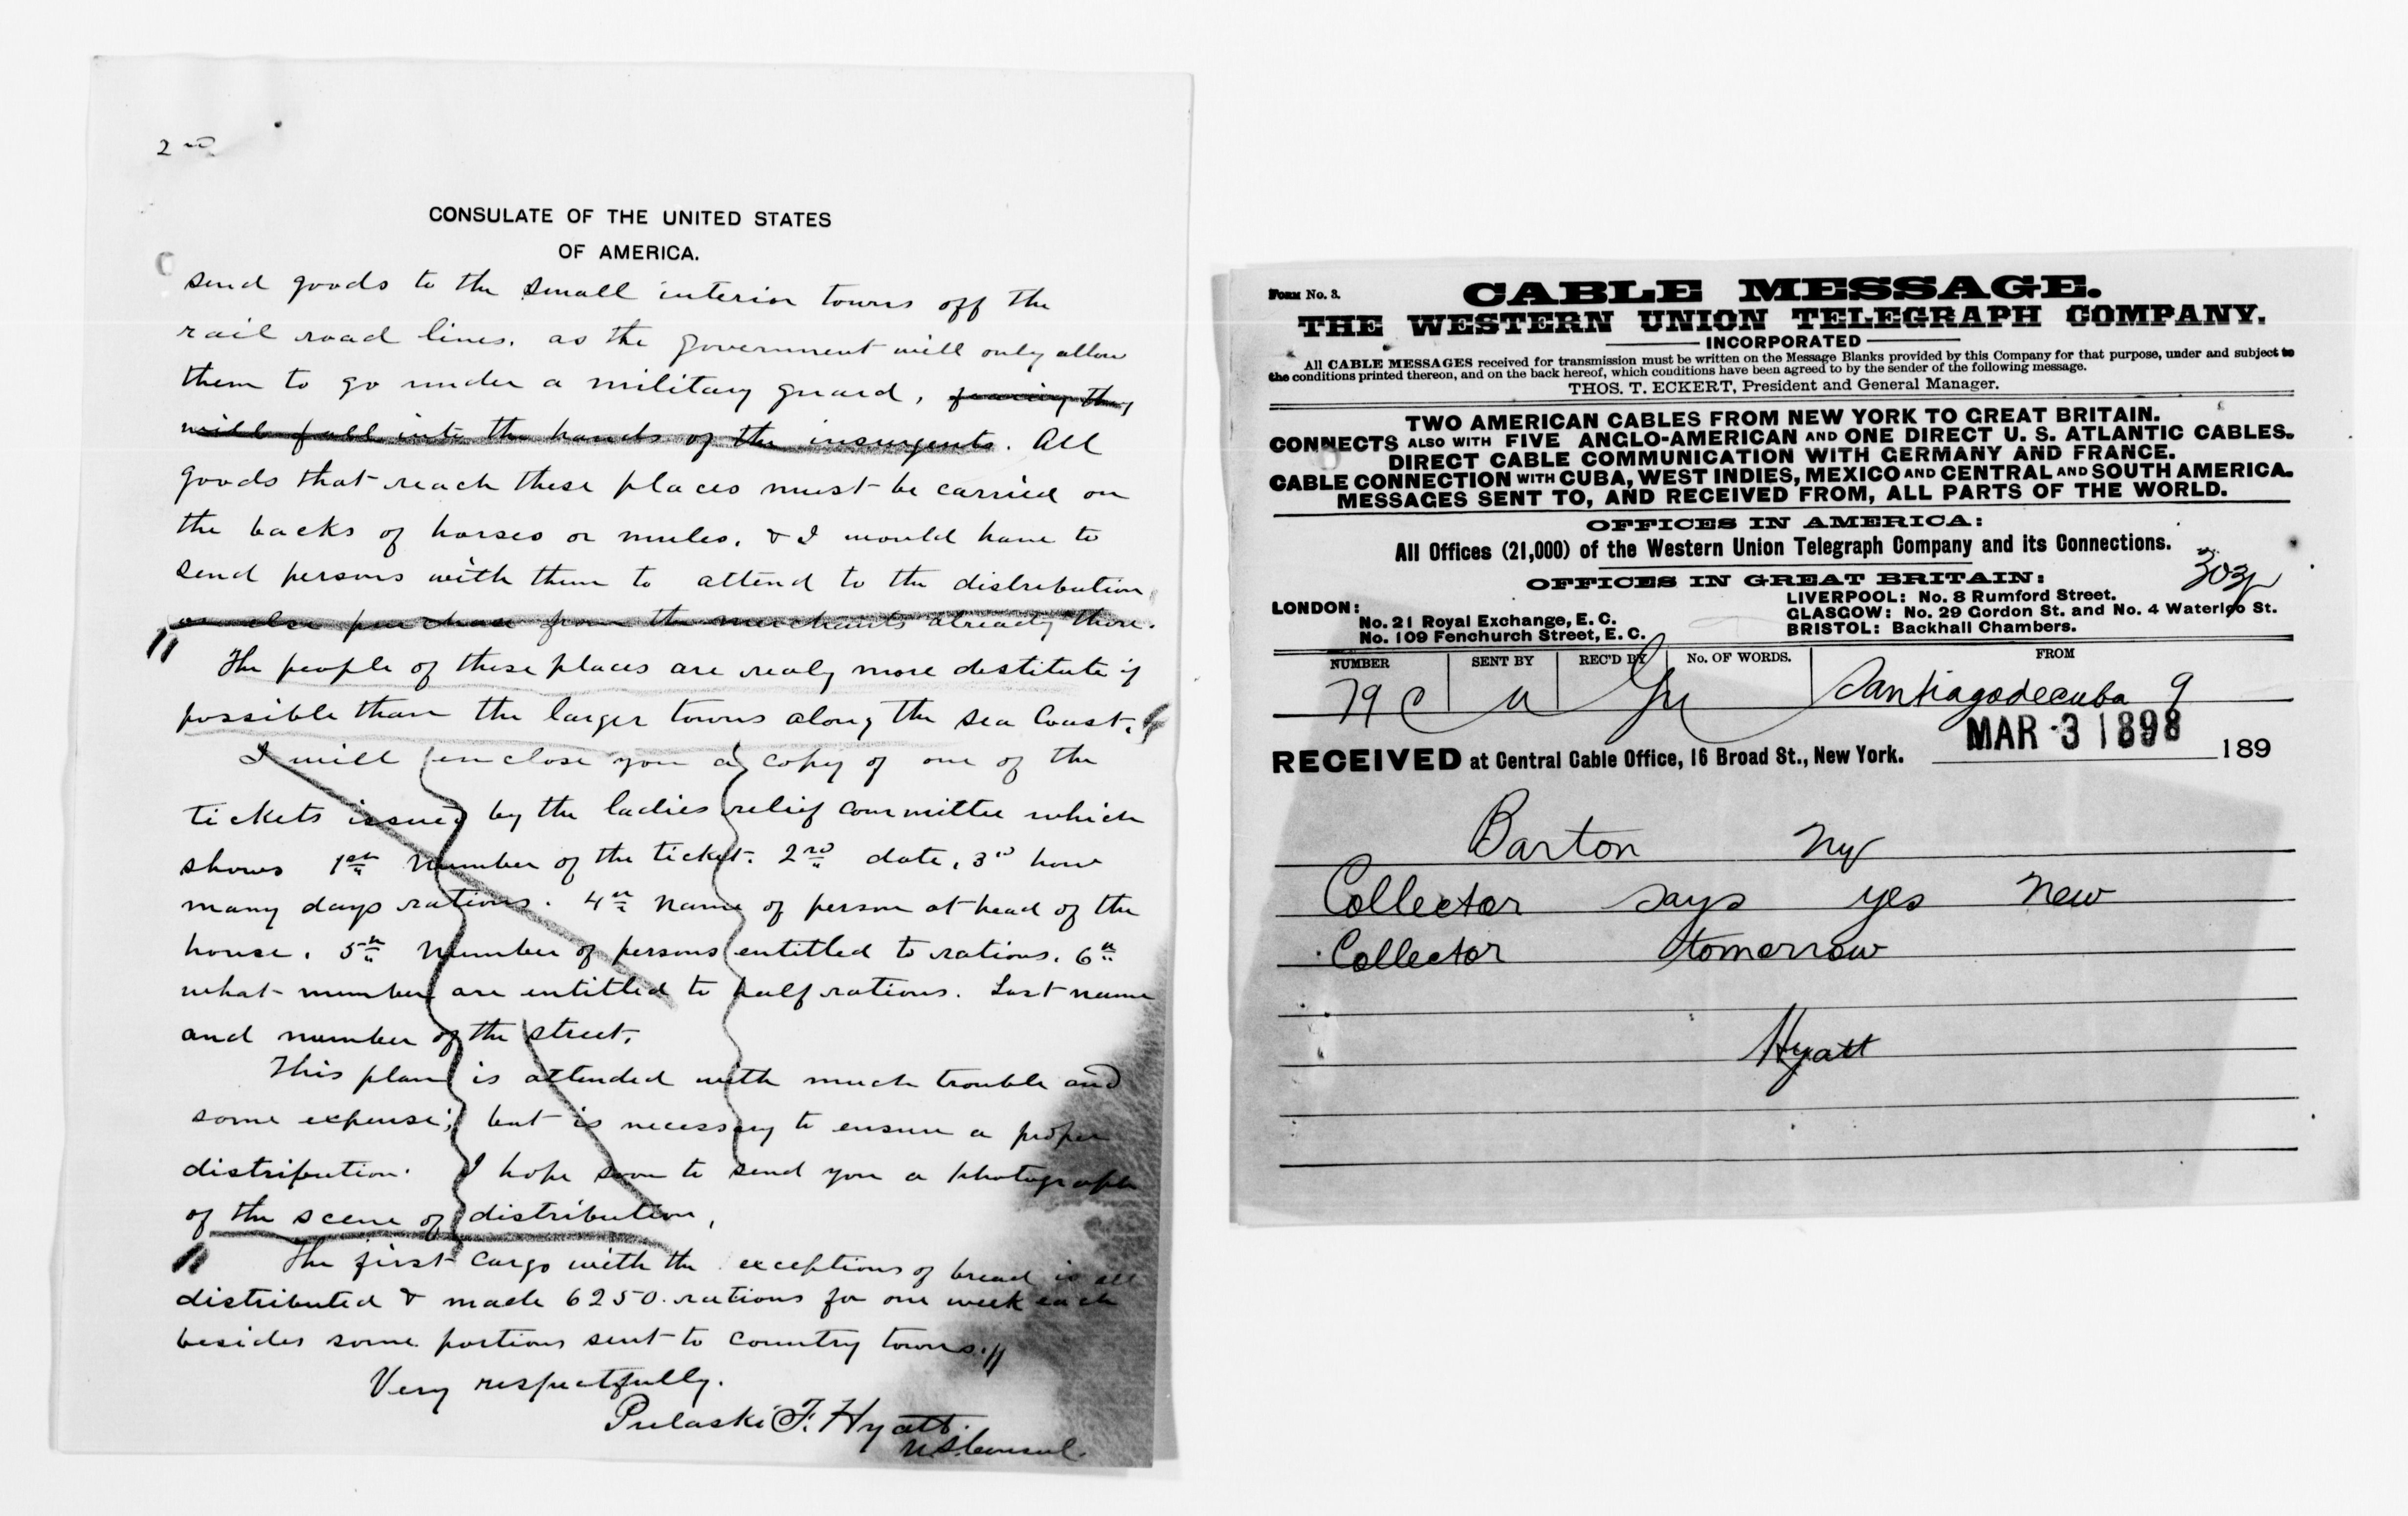 2nd
CONSULATE OF THE UNITED STATES
OF AMERICA.
send goods to the small interior towns off the
rail road lines. as the government will only allow
them to go under a military guard, fearing they
will fall into the hands of the insurgents. All
goods that reach these places must be carried on
the backs of horses or mules. & I would have to
send persons with them to attend to the distribution
or else purchase from the merchants already there.
" The people of these places are realy more destitute if
possible than the larger towns along the sea Coast. "
I will enclose you a copy of one of the
tickets issued by the ladies relief committee which
shows 1st Number of the ticket. 2nd date, 3rd how
many days rations. 4th Name of person at head of the
house. 5th Number of persons entitled to rations. 6th
what number are entitled to half rations. Last name
and number of the street.
This plan is attended with much trouble and
some expense; but is necessary to ensure a proper
distribution. I hope soon to send you a photograph
of the scene of distribution,
" The first cargo with the exceptions of bread is all
distributed & made 6250 rations for one week each
besides some portions sent to country towns. "
Very respectfully.
Pulaski F. Hyatt.
U S Consul.
Form No. 3.
CABLE MESSAGE.
THE WESTERN UNION TELEGRAPH COMPANY.
INCORPORATED
All CABLE MESSAGES received for transmission must be written on the Message Blanks provided by this Company for that purpose, under and subject to
the conditions printed thereon, and on the back hereof, which conditions have been agreed to by the sender of the following message.
THOS. T. ECKERT, President and General Manager.
TWO AMERICAN CABLES FROM NEW YORK TO GREAT BRITAIN.
CONNECTS ALSO WITH FIVE ANGLO-AMERICAN AND ONE DIRECT U. S. ATLANTIC CABLES.
DIRECT CABLE COMMUNICATION WITH GERMANY AND FRANCE.
CABLE CONNECTION WITH CUBA, WEST INDIES, MEXICO AND CENTRAL AND SOUTH AMERICA.
MESSAGES SENT TO, AND RECEIVED FROM, ALL PARTS OF THE WORLD.
OFFICES IN AMERICA:
All Offices (21,000) of the Western Union Telegraph Company and its Connections.
OFFICES IN GREAT BRITAIN:
303p
LONDON:
No. 21 Royal Exchange, E. C.
No. 109 Fenchurch Street, E. C.
LIVERPOOL: No. 8 Rumford Street.
GLASGOW: No. 29 Gordon St. and No. 4 Waterloo St.
BRISTOL: Backhall Chambers.
NUMBER SENT BY REC'D BY No. OF WORDS. FROM
79 C Santiagodecuba 9
MAR 3 1898
RECEIVED at Central Cable Office, 16 Broad St., New York. 189
Barton Ny
Collector says yes new
Collector tomorrow
Hyatt